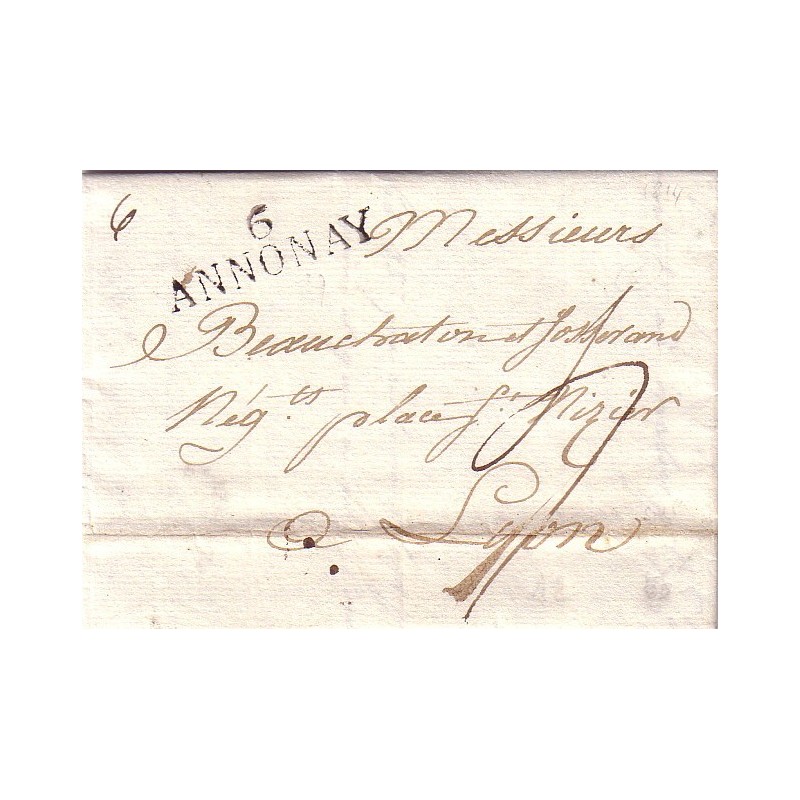 6
6
ANNONAY
1814
Messieurs
Beauchaton et Josserand
Nég.ts place St. Nizier
a Lyon